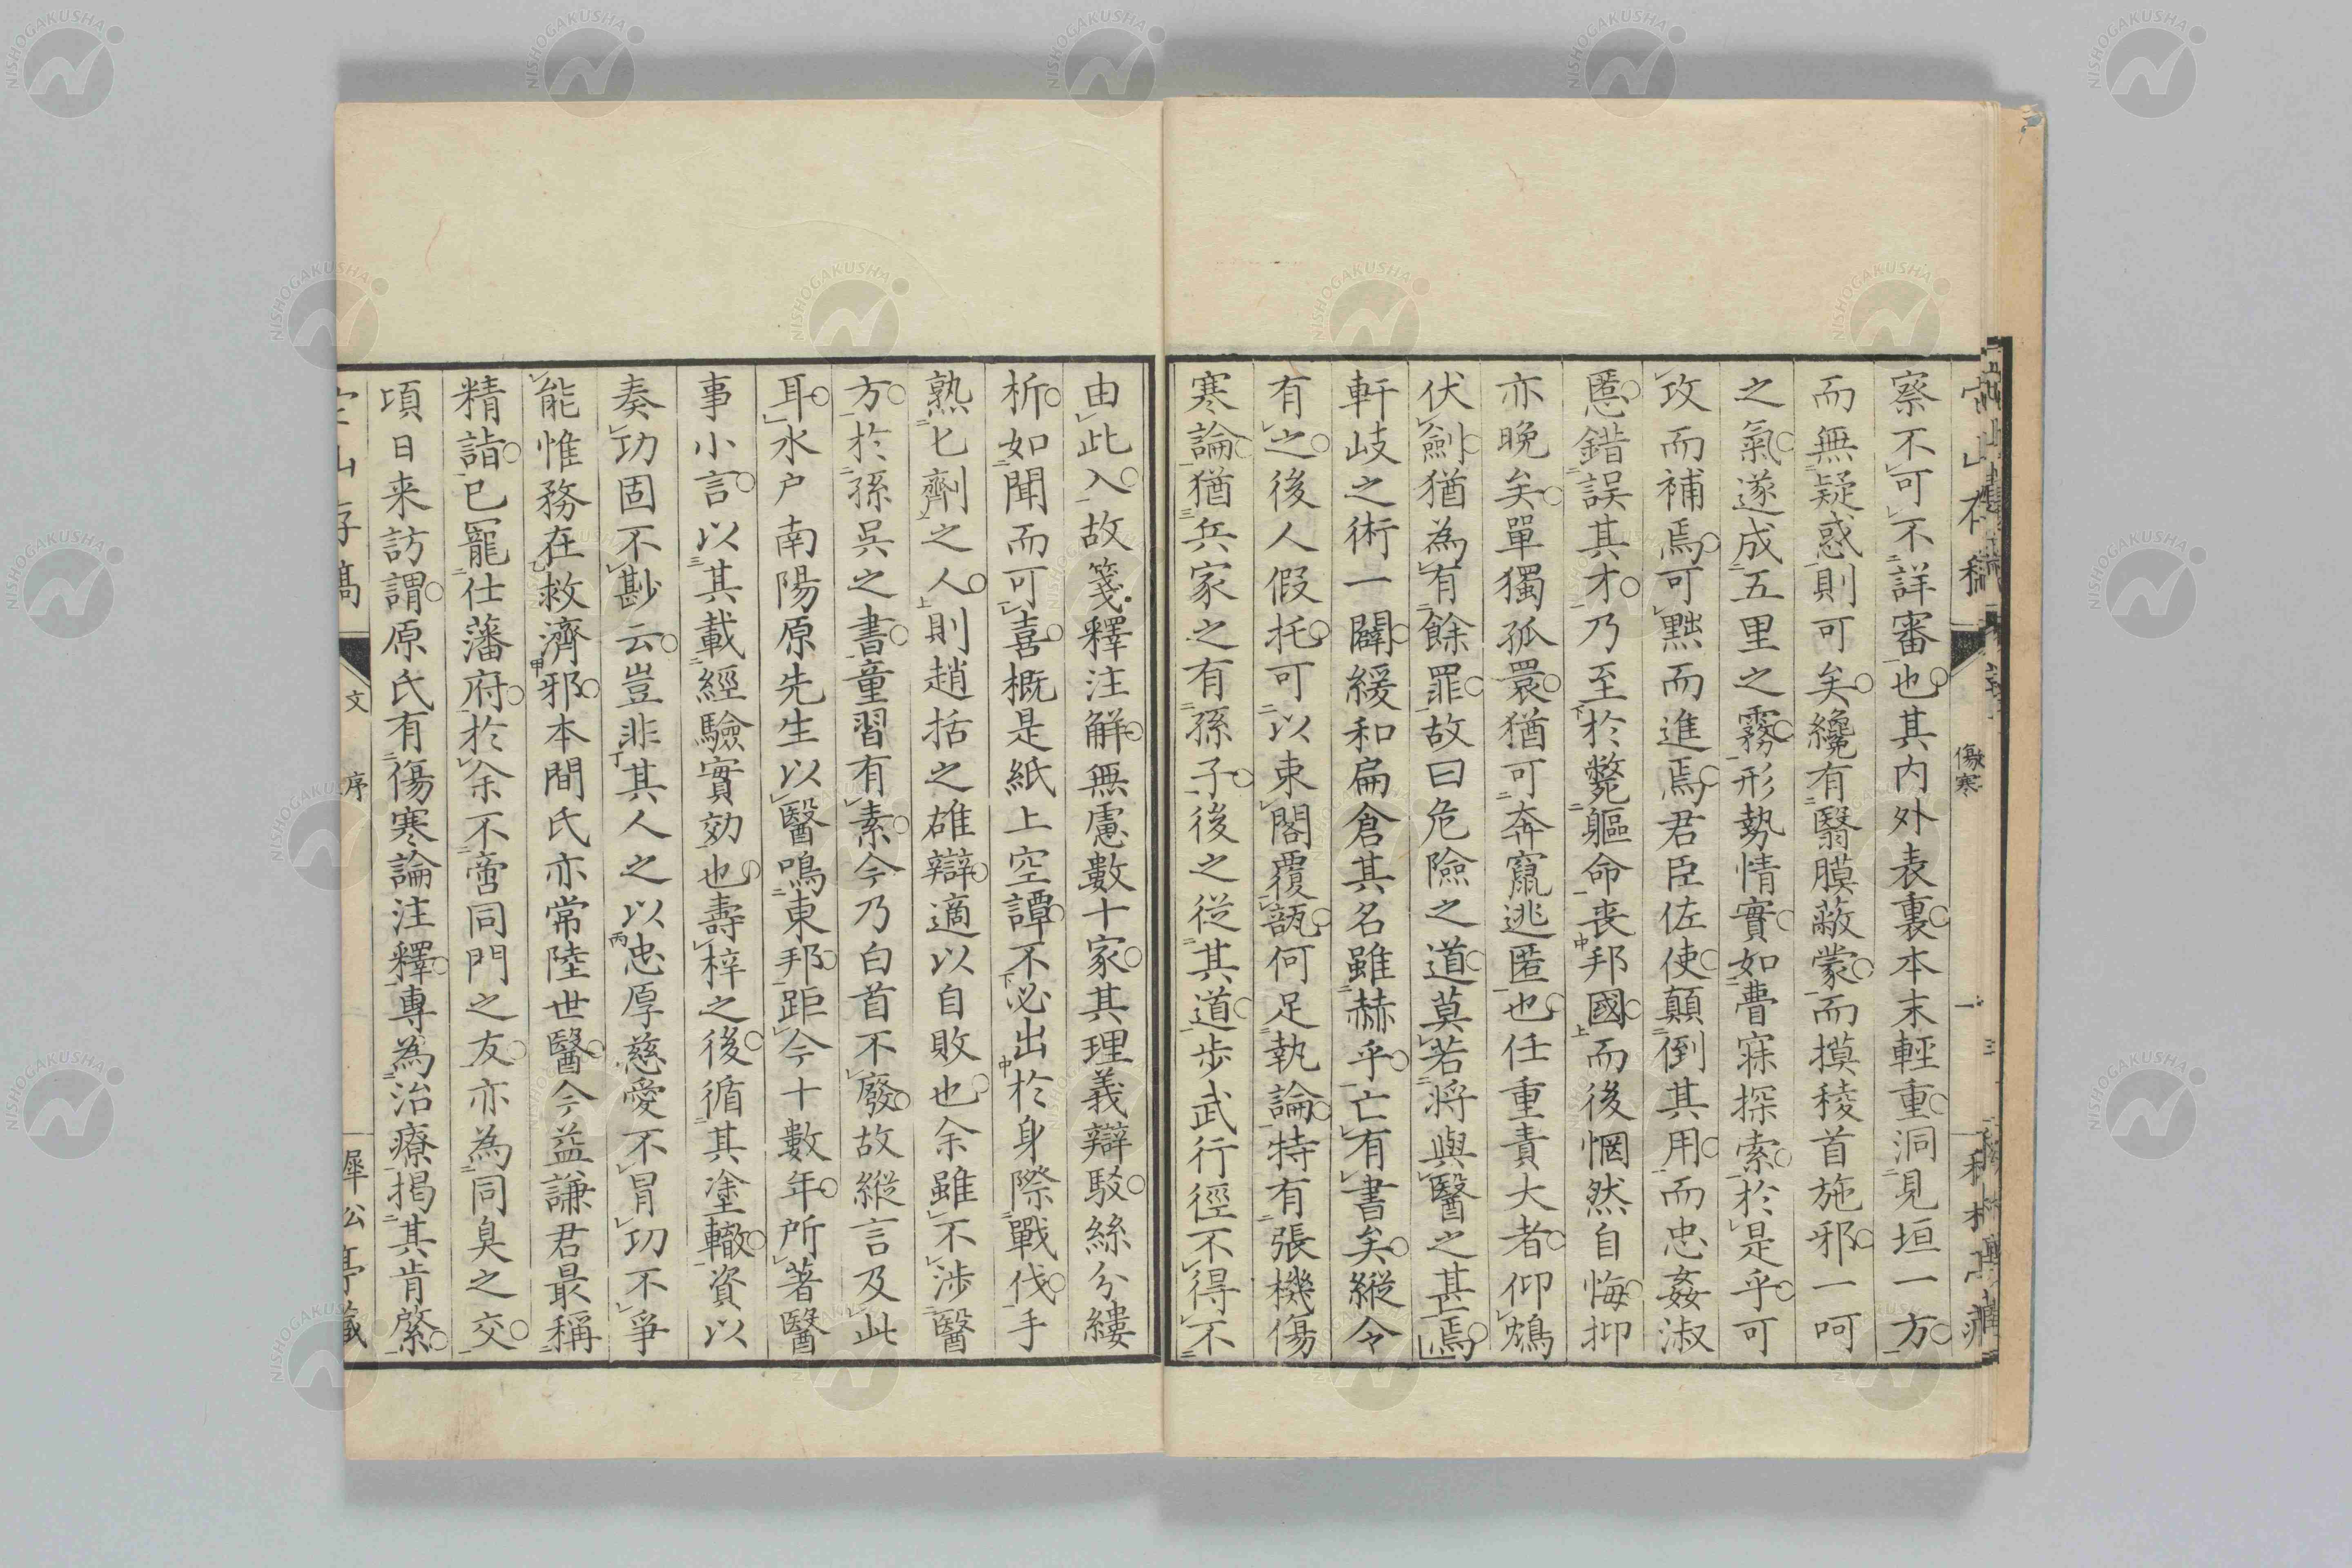 傷寒
察不可不詳審也其内外表裏本末輕重洞見垣一方
而無疑惑則可矣纔有翳膜蔽蒙而摸稜首施邪一呵
之氣遂成五里之霧形勢情實如瞢寐探索於是乎可
攻而補焉可黜而進焉君臣佐使顛倒其用而忠姦淑
慝錯誤其才乃至於斃軀命喪邦國而後惘然自悔抑
亦晩矣單獨孤睘猶可奔竄逃匿也任重責大者仰鴆
伏劍猶為有餘罪故曰危險之道莫若將與醫之甚焉
軒岐之術一闢緩和扁倉其名雖赫乎亡有書矣縱令
有之後人假托可以束閣覆瓿何足執論特有張機傷
寒論猶兵家之有孫子後之從其道步武行徑不得不
由此入故箋釋注解無慮數十家其理義辯駁絲分縷
析如聞而可喜概是紙上空譚不必出於身際戰伐手
熟匕劑之人則趙括之雄辯適以自敗也余雖不涉醫
方於孫呉之書童習有素今乃白首不廢故縱言及此
耳水戸南陽原先生以醫鳴東邦距今十數年所著醫
事小言以其載經驗實効也壽梓之後循其塗轍資以
奏功固不尠云豈非其人之以忠厚慈愛不冒功不爭
能惟務在救濟邪本間氏亦常陸世醫今益謙君最稱
精詣已寵仕藩府於余不啻同門之友亦為同臭之交
項日来訪謂原氏有傷寒論注釋專為治療掲其肯綮
文
序